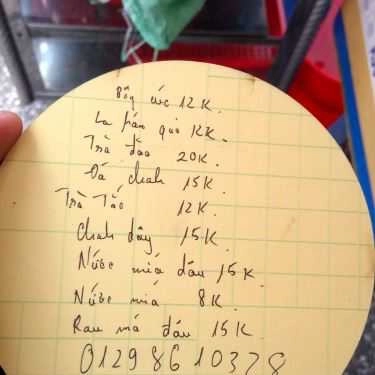 Bông cúc 12K.
La hán quả 12K.
Trà đào 20K.
Đá chanh 15K.
Trà Tắc 12K.
Chanh dây 15K.
Nước mía dâu 15K.
Nước mía 8K.
Rau má đậu 15K.
01298610378